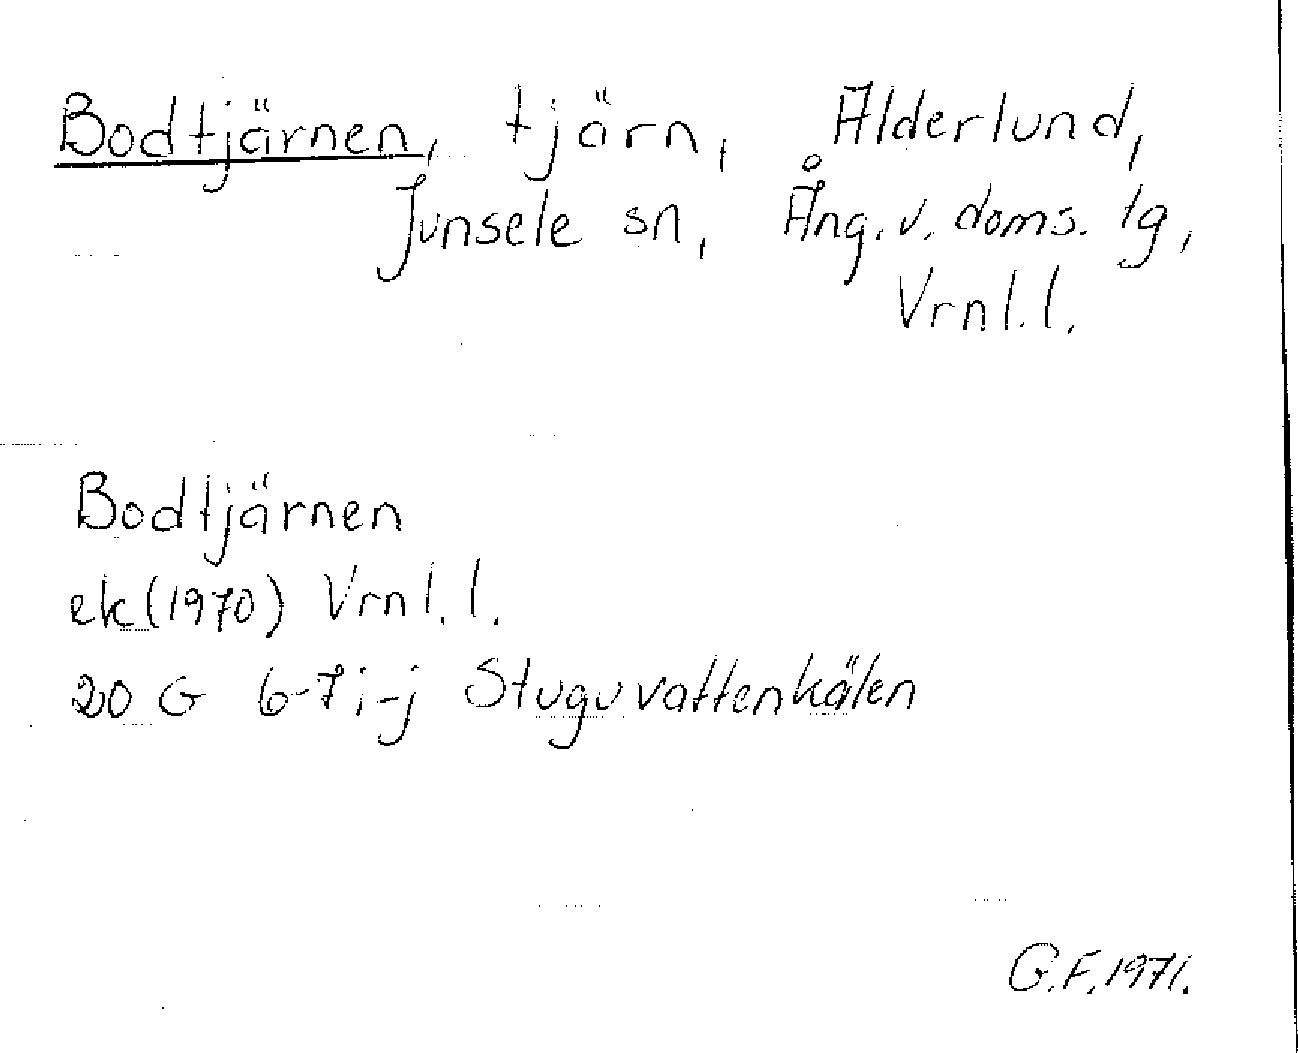 Bodtjärnen, tjärn, Alderlund,
Junsele sn, Ång. v. doms. lg,
Vrnl.l.
Bodtjärnen
ek(1970) Vrnl.l.
20 G 6-7i-j Stuguvattenkälen
G.F.1971.